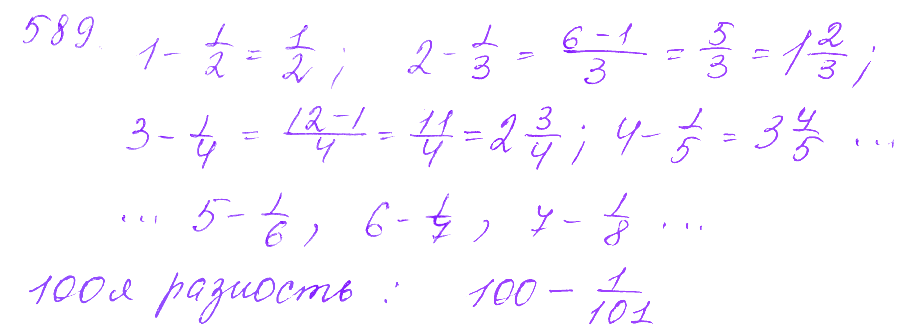 589. 1 - 1/2 = 1/2 ; 2 - 1/3 = (6-1)/3 = 5/3 = 1 2/3 ;
3 - 1/4 = (12-1)/4 = 11/4 = 2 3/4 ; 4 - 1/5 = 3 4/5 ...
... 5 - 1/6 , 6 - 1/7 , 7 - 1/8 ...
100я разность : 100 - 1/101